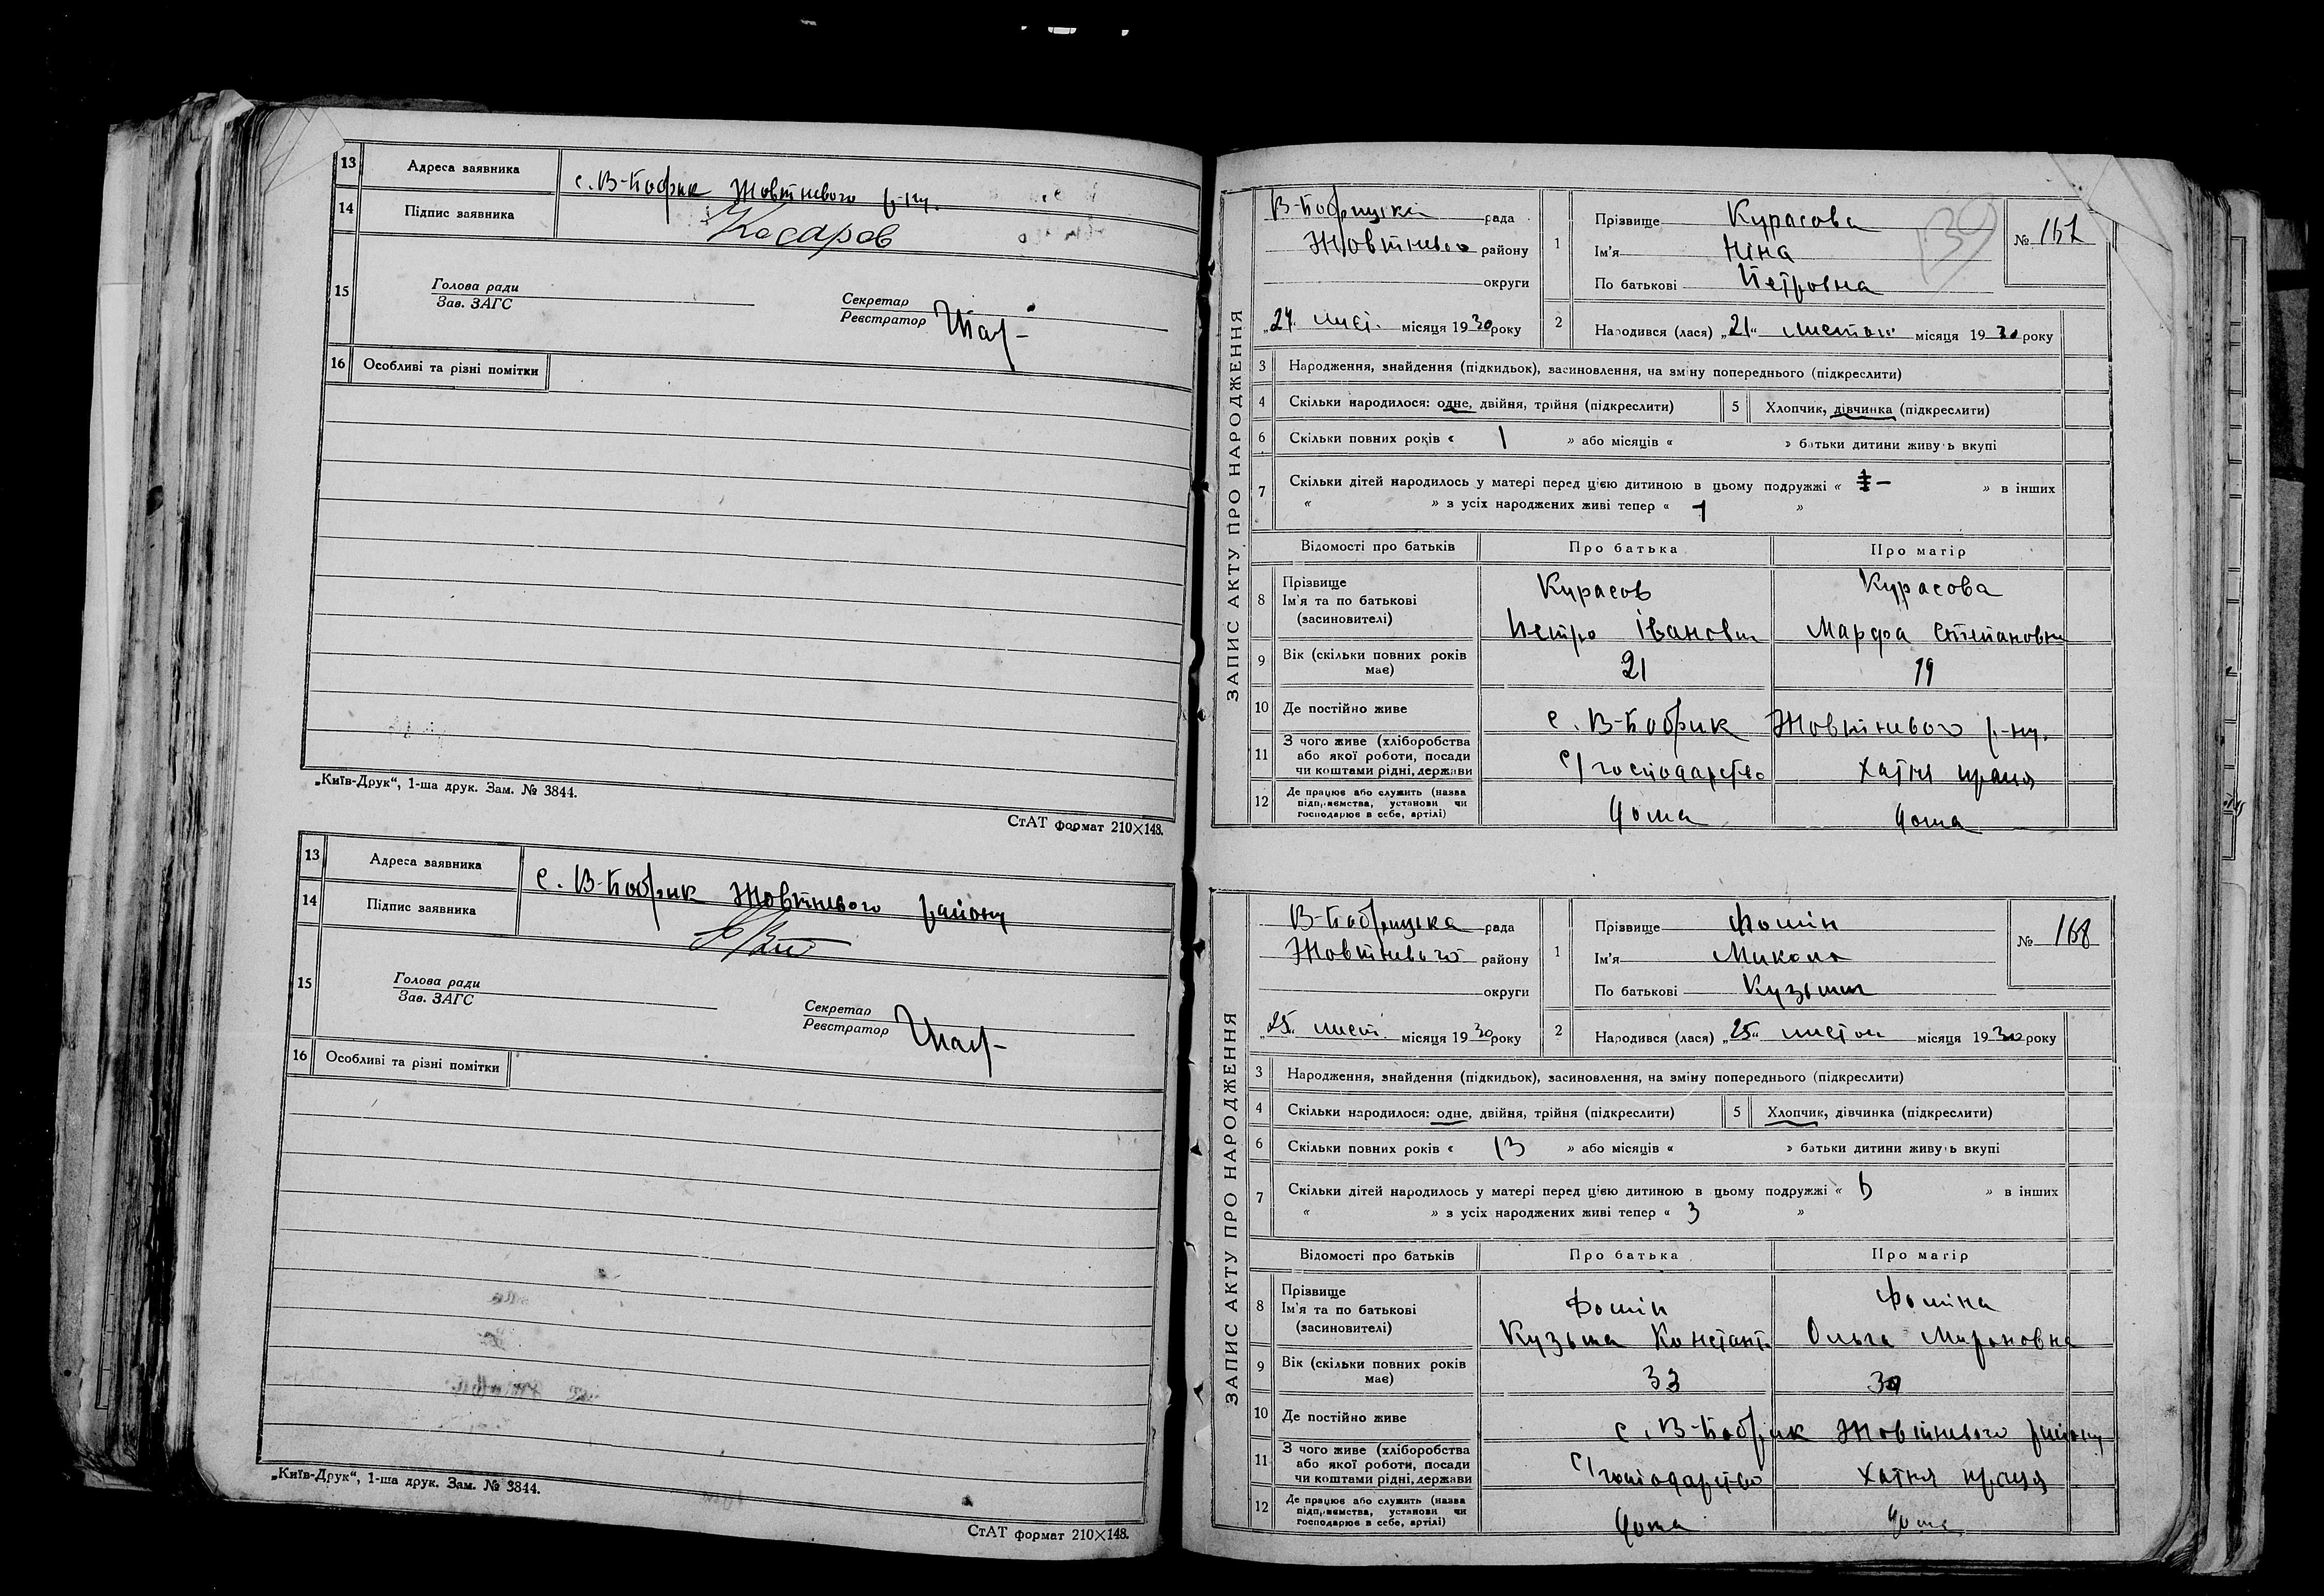 13 Адреса заявника с. В-Бобрик Жовтневого р-ну.
14 Підпис заявника
15 Голова ради
Зав. ЗАГС
Секретар
Реєстратор
16 Особливі та різні помітки
„Київ-Друк“, 1-ша друк. Зам. № 3844.
СтАТ формат 210×148.
13 Адреса заявника с. В-Бобрик Жовтневого району
14 Підпис заявника
15 Голова ради
Зав. ЗАГС
Секретар
Реєстратор
16 Особливі та різні помітки
„Київ-Друк“, 1-ша друк. Зам. № 3844.
СтАТ формат 210×148.
139
ЗАПИС АКТУ ПРО НАРОДЖЕННЯ
В-Бобрицька рада
Жовтневого району
округи
„24“ лист. місяця 1930 року
1 Прізвище Курасова
Ім'я Ніна
По батькові Петровна
№ 167
2 Народився (лася) „21“ листоп місяця 1930 року
3 Народження, знайдення (підкидьок), засиновлення, на зміну попереднього (підкреслити)
4 Скільки народилося: одне, двійня, трійня (підкреслити) 5 Хлопчик, дівчинка (підкреслити)
6 Скільки повних років « 1 » або місяців « » батьки дитини живуть вкупі
7 Скільки дітей народилось у матері перед цією дитиною в цьому подружжі « – » в інших
« » з усіх народжених живі тепер « 1 »
Відомості про батьків Про батька Про матір
8 Прізвище Курасов Курасова
Ім'я та по батькові
(засиновителі) Петро Іванович Марфа Степановна
9 Вік (скільки повних років має) 21 19
10 Де постійно живе с. В-Бобрик Жовтневого р-ну.
11 З чого живе (хліборобства
або якої роботи, посади
чи коштами рідні, держави с/господарство хатня праця
12 Де працює або служить (назва
підприємства, установи чи
господарює в себе, артілі) дома дома
ЗАПИС АКТУ ПРО НАРОДЖЕННЯ
В-Бобрицька рада
Жовтневого району
округи
„25“ лист. місяця 1930 року
1 Прізвище Фомін
Ім'я Микола
По батькові Кузьмич
№ 168
2 Народився (лася) „25“ листоп місяця 1930 року
3 Народження, знайдення (підкидьок), засиновлення, на зміну попереднього (підкреслити)
4 Скільки народилося: одне, двійня, трійня (підкреслити) 5 Хлопчик, дівчинка (підкреслити)
6 Скільки повних років « 13 » або місяців « » батьки дитини живуть вкупі
7 Скільки дітей народилось у матері перед цією дитиною в цьому подружжі « » в інших
« » з усіх народжених живі тепер « 3 »
Відомості про батьків Про батька Про матір
8 Прізвище Фомін Фоміна
Ім'я та по батькові
(засиновителі) Кузьма Констант. Ольга Мироновна
9 Вік (скільки повних років має) 33 30
10 Де постійно живе с. В-Бобрик Жовтневого району
11 З чого живе (хліборобства
або якої роботи, посади
чи коштами рідні, держави с/господарство хатня праця
12 Де працює або служить (назва
підприємства, установи чи
господарює в себе, артілі) дома дома